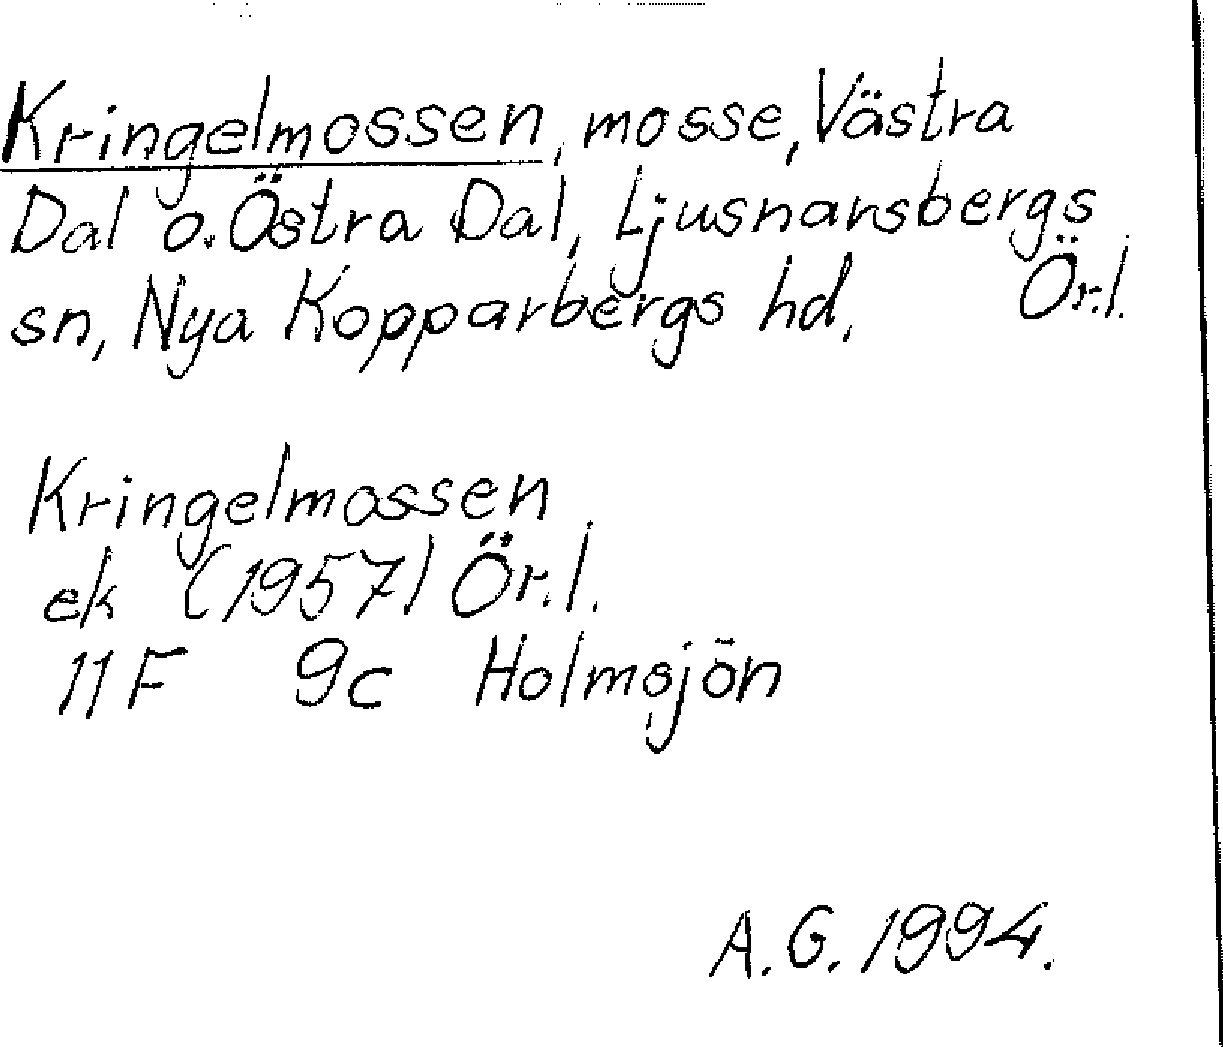 Kringelmossen, mosse, Västra
Dal o. Östra Dal, Ljusnarsbergs
sn, Nya Kopparbergs hd, Ör.l.
Kringelmossen
ek (1957) Ör.l.
11F 9c Holmsjön
A.G. 1994.